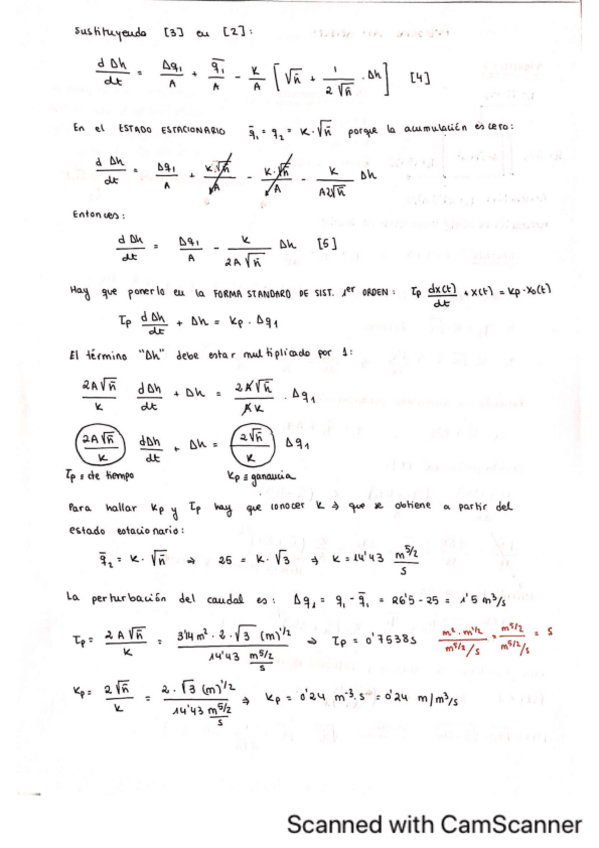 Sustituyendo [3] en [2]:
d Δh/dt = Δq1/A + q̄1/A - K/A [√h̄ + 1/(2√h̄) · Δh] [4]
En el ESTADO ESTACIONARIO q̄1 = q̄2 = K·√h̄ porque la acumulación es cero:
d Δh/dt = Δq1/A + K·√h̄/A - K·√h̄/A - K/(A2√h̄) Δh
Entonces:
d Δh/dt = Δq1/A - K/(2A√h̄) Δh [5]
Hay que ponerlo en la FORMA STANDARD DE SIST. 1er ORDEN: τp dx(t)/dt + x(t) = Kp·x0(t)
τp d Δh/dt + Δh = Kp · Δq1
El término "Δh" debe estar multiplicado por 1:
2A√h̄/K dΔh/dt + Δh = 2A√h̄/AK · Δq1
2A√h̄/K dΔh/dt + Δh = 2√h̄/K Δq1
τp ≡ de tiempo Kp ≡ ganancia
Para hallar Kp y τp hay que conocer K → que se obtiene a partir del
estado estacionario:
q̄2 = K·√h̄ ⇒ 25 = K·√3 ⇒ K = 14'43 m^5/2/s
La perturbación del caudal es: Δq1 = q1 - q̄1 = 26'5 - 25 = 1'5 m³/s
τp = 2A√h̄/K = 3'14 m² · 2 · √3 (m)^1/2 / 14'43 m^5/2/s ⇒ τp = 0'7538 s m²·m^1/2/m^5/2/s = m^5/2/m^5/2/s = s
Kp = 2√h̄/K = 2·√3 (m)^1/2 / 14'43 m^5/2/s ⇒ Kp = 0'24 m^-2·s = 0'24 m/m³/s
Scanned with CamScanner